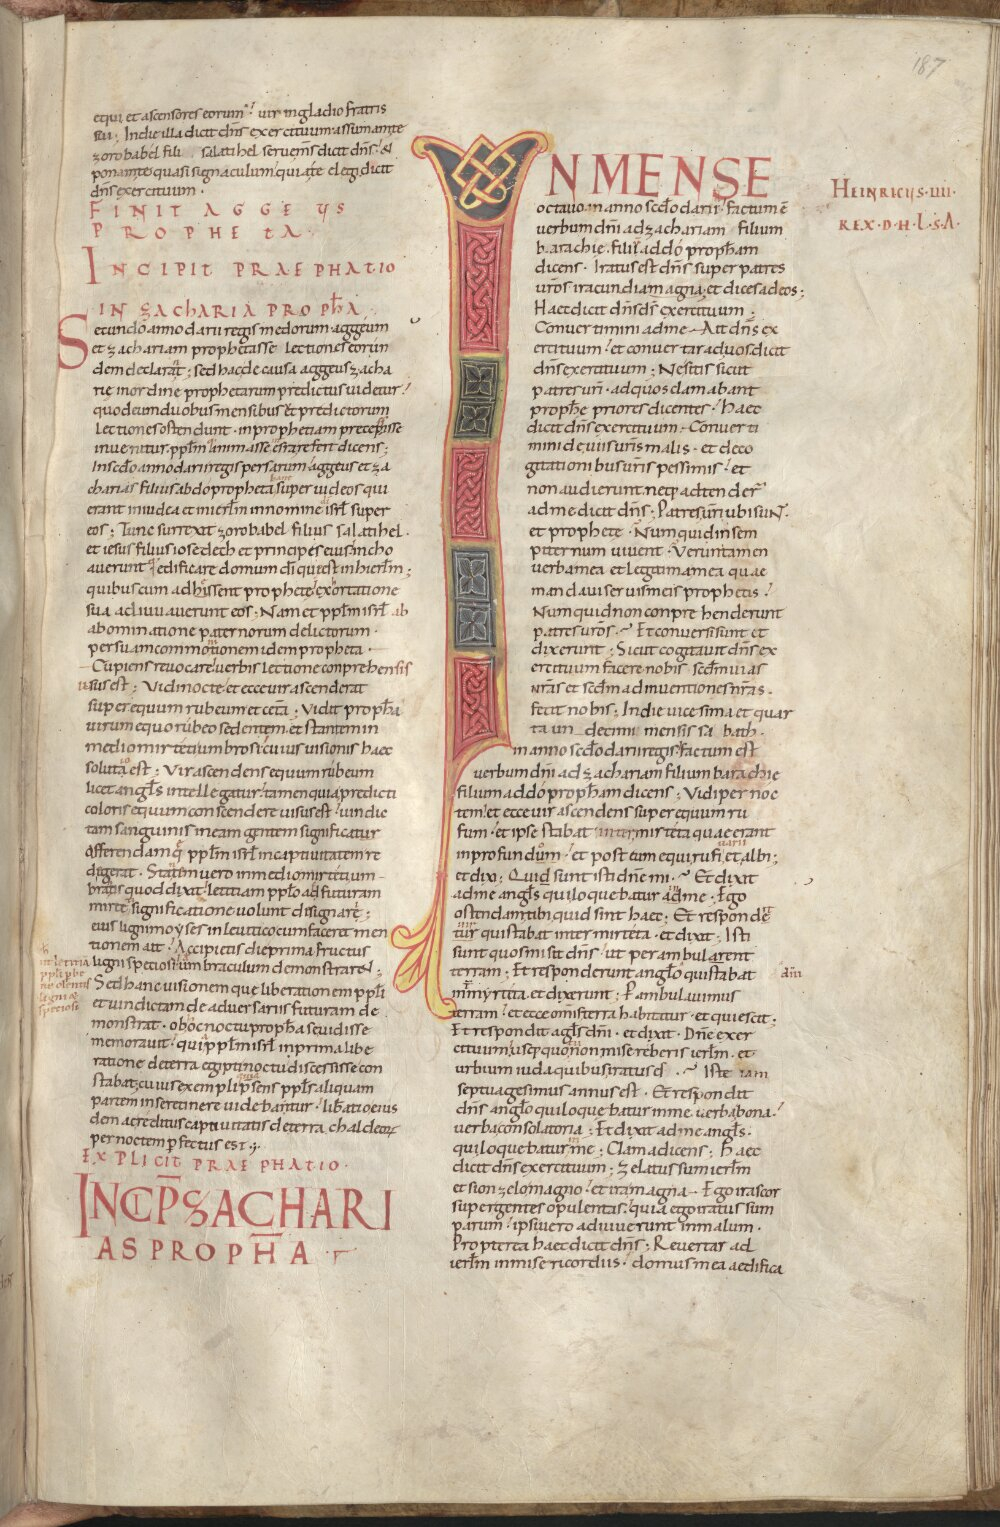 187
equi et ascensores eorum · uir in gladio fratris
sui ; In die illa dicit dn̄s exercituum assumam te
zorobabel fili salathiel serue m̄s dicit dn̄s · &
ponam te quasi signaculum · quia te elegi dicit
dn̄s exercituum ·
FINIT AGGEUS
PROPHETA ·
INCIPIT PRAEPHATIO
IN ZACHARIA PROPH̄A
Secundo anno darii regis medorum aggeum
et zachariam prophetasse lectiones eorun
dem declarant ; sed hac de causa aggeus zacha
rie in ordine prophetarum predictus uidetur ·
quod eum duobus mensibus & predictorum
lectiones ostendunt · in prophetiam precessisse
inuenitus · pplm̄ animasse esras refert dicens ;
In scd̄o anno darii regis persarum aggeus et za
charias filius abdo propheta super iudeos qui
erant in iudea et in ierlm̄ in nomine isrl̄ super
eos ; Tunc surrexit zorobabel filius salathiel ·
et iesus filius iosedech et principes eius incho
auerunt edificare domum dī qui est in hierlm̄ ;
quibus cum adhissent prophete exortatione
sua adiuuauerunt eos ; Nam et pplm̄ isrl̄ ab
abominatione paternorum delictorum ·
per suam commotionem idem propheta ·
Cupiens reuocare uerbis lectione conprehensis
usus est ; Vidi nocte et ecce uir ascenderat
super equum rubeum et cetā ; Vidit proph̄a
uirum equo rubeo sedentem et stantem in
medio mirtetium brosi cuius uisionis haec
soluta est ; Vir ascendens equum rubeum
licet angl̄s intellegatur tamen quia predicti
coloris equum conscendere uisus est · uindic
tam sanguinis in eam gentem significatur
offerendam q̄ pplm̄ isrl̄ in captiuitatem re
digerat · Statem uero in medio mirtetium
bratis quod dixit · letitiam ppl̄o ad futuram
mirte significatione uolunt disignare ;
eius ligni moyses in leuitico cum faceret men
tionem ait · Accipietis die prima fructus
ligni speciosi um braculum demonstrare ;
Sed hanc uisionem que liberationem ppl̄i
et uindictam de aduersariis futuram de
monstrat · ob hoc noctu proph̄a se uidisse
memorauit · qui pplm̄ isrl̄ in prima libe
ratione de terra egipti noctu discessisse con
stabat ; cuius exempli p̄sens ppl̄s aliquam
partem inse retinere uidebantur · liberatio eius
dem ac reditus captiuitatis de terra chaldeorum
per noctem perfectus est ·
EXPLICIT PRAEPHATIO ·
INCIP̄ ZACHARI
AS PROPH̄A ·
IN MENSE
octauo in anno scd̄o darii · factum ē
uerbum dn̄i ad zachariam filium
barachie · filii addo proph̄am
dicens · Iratus est dn̄s super patres
ur̄os iracundiam agnā · et dices ad eos ;
Haec dicit dn̄s dī exercituum :
Conuertimini ad me — Ait dn̄s ex
ercituum · et conuertar ad uos dicit
dn̄s exercituum ; Ne sitis sicut
patres ur̄i · ad quos clamabant
proph̄e priores dicentes · Haec
dicit dn̄s exercituum · Conuerti
mini de uiis ur̄is malis · et de co
gitationibus ur̄is pessimis · et
non audierunt neq; adtender
ad me dicit dn̄s ; Patres ur̄i ubi suN ·
et prophete · Numquid in sem
piternum uiuent · Veruntamen
uerba mea et legitima mea quae
mandaui seruis meis prophetis ·
Numquid non conprehenderunt
patres ur̄os · Et conuersi sunt et
dixerunt ; Sicut cogitauit dn̄s ex
ercituum facere nobis scdm̄ uias
nr̄as et scdm̄ adinuentiones nr̄as ·
fecit nobis ; In die uicesima et quar
ta un decimi mensis sa bath ·
in anno scd̄o darii regis · factum est
uerbum dn̄i ad zachariam filium barachie
filium addo proph̄am dicens ; Vidi per noc
tem · et ecce uir ascendens super equum ru
fum · et ipse stabat inter mirteta quae erant
in profundum · et post eum equi rufi uarii et albi ;
et dixi ; Quid sunt isti dn̄e mi · Et dixit
ad me angl̄s qui loquebatur ad me · Ego
ostendam tibi quid sint haec ; Et respondē
tur qui stabat inter mirteta · et dixit ; Isti
sunt quos misit dn̄s · ut perambularent
terram ; Et responderunt angl̄o qui stabat
in myrteta · et dixerunt ; Pambulauimus
terram · et ecce omis terra habitatur · et quiescit ;
Et respondit agl̄s dn̄i · et dixit · Dn̄e exer
cituum usq; quo non misereberis ierlm̄ · et
urbium iuda quibus iratus es · Iste iam
septuagesimus annus est · Et respondit
dn̄s angl̄o qui loquebatur in me · uerba bona ·
uerba consolatoria ; Et dixit ad me angl̄s ·
qui loquebatur in me ; Clama dicens ; Haec
dicit dn̄s exercituum ; Zelatus sum ierlm̄
et sion zelo magno · et ira magna — Ego irascor
super gentes opulentas · quia ego iratus sum
parum · ipsi uero adiuuerunt in malum ·
Propterea haec dicit dn̄s ; Reuertar ad
ierlm̄ in misericordiis · domus mea aedifica
HEINRICUS · IIII ·
REX · D · H · L · S · A ·
dn̄i